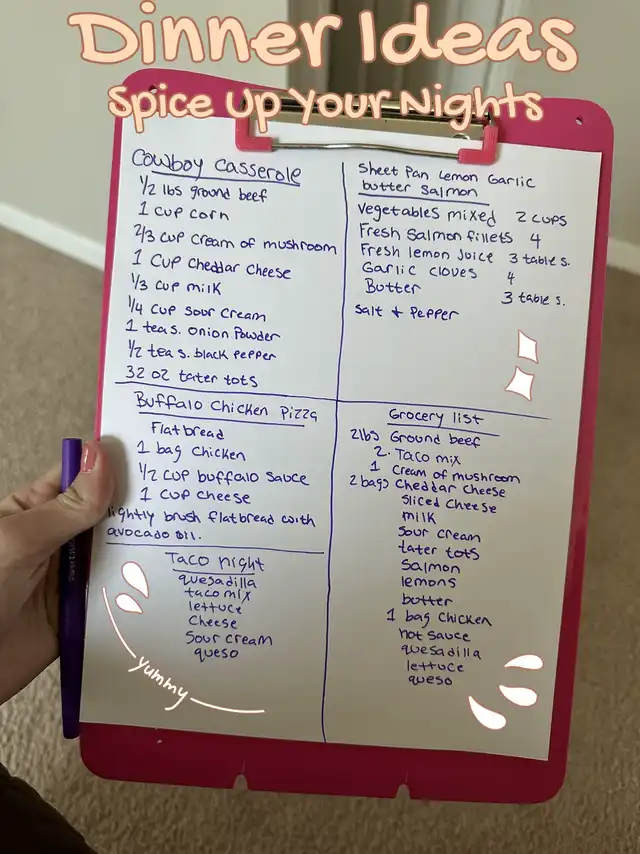 Dinner Ideas
Spice Up Your Nights
Cowboy Casserole
1/2 lbs ground beef
1 cup corn
2/3 cup cream of mushroom
1 cup cheddar cheese
1/3 cup milk
1/4 cup sour cream
1 teas. onion powder
1/2 teas. black pepper
32 oz tater tots
Sheet Pan Lemon Garlic
butter salmon
vegetables mixed 2 cups
Fresh salmon fillets 4
Fresh lemon juice 3 tables.
Garlic cloves 4
Butter 3 tables.
salt + pepper
Buffalo Chicken Pizza
Flatbread
1 bag chicken
1/2 cup buffalo sauce
1 cup cheese
lightly brush flatbread with
avocado oil.
Taco night
quesadilla
taco mix
lettuce
cheese
sour cream
queso
yummy
Grocery list
2lbs Ground beef
2. Taco mix
1 cream of mushroom
2 bags cheddar cheese
sliced cheese
milk
sour cream
tater tots
salmon
lemons
butter
1 bag chicken
hot sauce
quesadilla
lettuce
queso